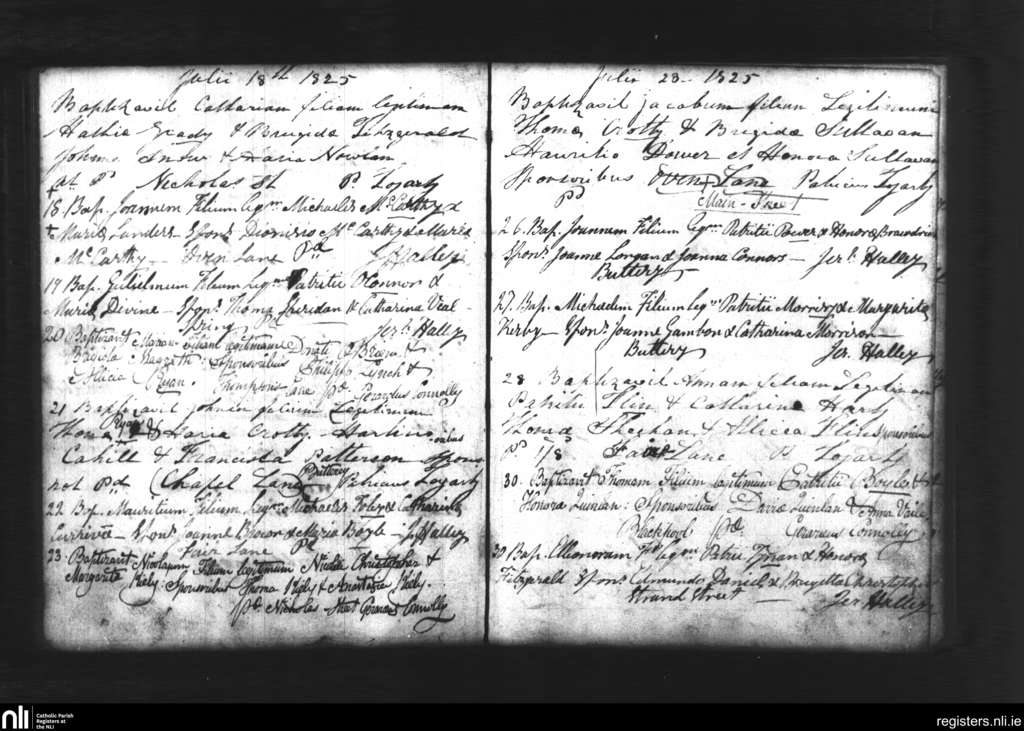 Julii 18th 1825
Baptizavit Catharinam filiam legitimam
Grady & Brigida Fitzgerald
& Maria Nowlan
Nicholas St P. Fogarty
18 Bap. Joannem Filium Legm Michaelis McCarthy &
Maria Landers Spons Dionisio McCarthy & Maria
McCarthy Oven Lane Pd J Halley
19 Bap. Gulielmum Filium Legm Patritii OConnors &
Maria Divine Spons Thoma Sheridan & Catharina Veal
Spring Jer. Halley
20 Baptizavit filiam legitimam Donati &
Brigida Sponsoribus Philip Lynch &
Allicia Ryan. Thompsons Lane Pd. Gerardus Connolly
21 Baptizavit Johnim filium Legitimum
Ryan
Thoma & Maria Crotty
Cahill & Francisca Patterson Spons
not Pd Chapel Lane Patricius Fogarty
Buttery
22 Bap. Mauritium Filium Legm Michaelis Foley & Catharina
Spons Joanne Brown & Maria Boyle J Halley
Fair Lane Pd
23 Baptizavit Nicolaum Filium legitimum Christopher &
Margerita Kiely Sponsoribus Thoma Kiely & Anastasia Kiely
Pd Nicholas Street Gerardus Connolly
Julii 23 1825
Baptizavit Jacobum filium Legitimum
Thoma Crotty & Brigida Sullavan
Mauritio Power et Honora Sullavan
Sponsoribus Oven Lane Patricius Fogarty
Pd Main Street
26. Bap. Joannem Filium Legm Patritii Power & Honora
Spons Joanne Longan & Joanna Connors Jer. Halley
Buttery
27. Bap. Michaelem Filium Legm Patritii Morrisy & Margarita
Kerby Spons Joanne Gambon & Catharina Morrison
Buttery Jer. Halley
28 Baptizavit Annam filiam Legitimam
Patritii Flin & Catharina Hart
Thoma Sheehan & Allicea Flin Sponsoribus
Pd 1/8 Fair Lane P Fogarty
30. Baptizavit Thomam Filium legitimum Patritii Boyle &
Honora Lunian: Sponsoribus David Quinlan & Anna
Blackpool Pd Gerardus Connolly
30 Bap. Ellionoram Patrii Foran & Honora
Fitzgerald Spons Edmundo Daniel & Brigitta Christopher
Strand Street Jer Halley
nli
Catholic Parish
Registers at
the NLI
registers.nli.ie